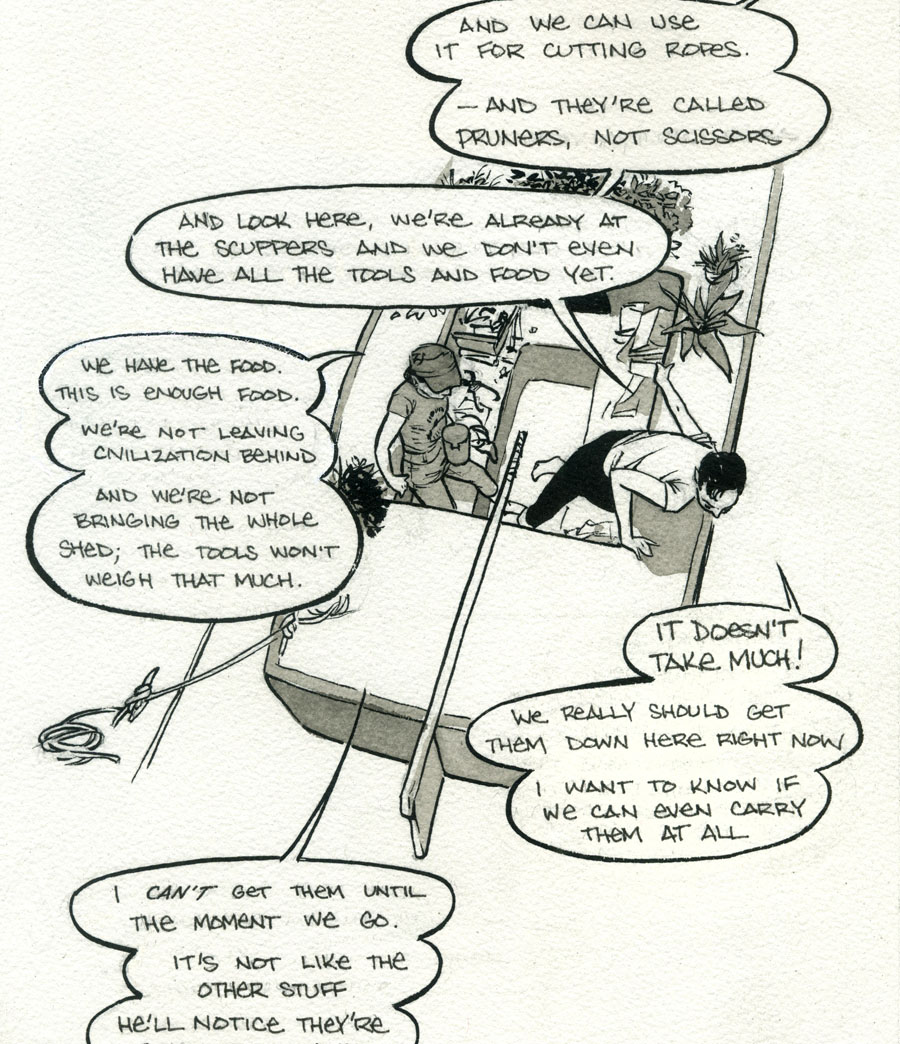 AND WE CAN USE
IT FOR CUTTING ROPES.
— AND THEY'RE CALLED
PRUNERS, NOT SCISSORS
AND LOOK HERE, WE'RE ALREADY AT
THE SCUPPERS AND WE DON'T EVEN
HAVE ALL THE TOOLS AND FOOD YET.
WE HAVE THE FOOD.
THIS IS ENOUGH FOOD.
WE'RE NOT LEAVING
CIVILIZATION BEHIND
AND WE'RE NOT
BRINGING THE WHOLE
SHED; THE TOOLS WON'T
WEIGH THAT MUCH.
IT DOESN'T
TAKE MUCH!
WE REALLY SHOULD GET
THEM DOWN HERE RIGHT NOW
I WANT TO KNOW IF
WE CAN EVEN CARRY
THEM AT ALL
I CAN'T GET THEM UNTIL
THE MOMENT WE GO.
IT'S NOT LIKE THE
OTHER STUFF
HE'LL NOTICE THEY'RE